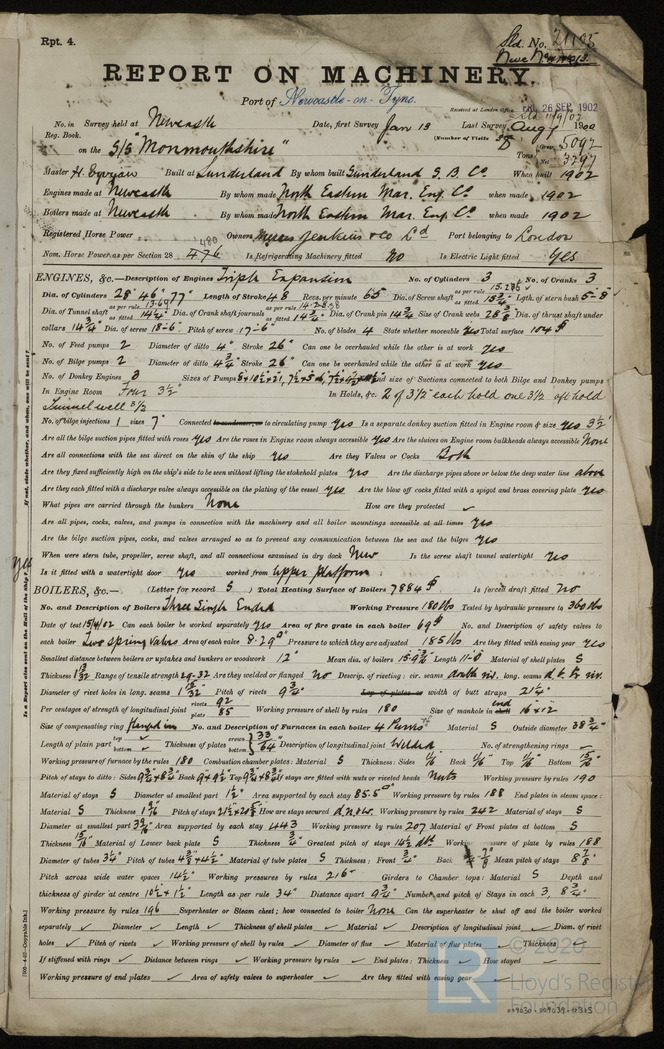 Rpt. 4.
Sld. No. 21105
REPORT ON MACHINERY.
Port of Newcastle-on-Tyne.
Received at London Office 26 SEP 1902
No. in Survey held at Newcastle Date, first Survey Jan 13 Last Survey Aug 1902
Reg. Book. (Number of Visits
on the S/S "Monmouthshire" Tons Gross 5092 Net 3297
Master Built at Sunderland By whom built Sunderland S. B. Co. When built 1902
Engines made at Newcastle By whom made North Eastern Mar. Eng. Co when made 1902
Boilers made at Newcastle By whom made North Eastern Mar. Eng. Co when made 1902
Registered Horse Power Owners Messrs Jenkins & Co Ld Port belonging to London
Nom. Horse Power as per Section 28 476 480 Is Refrigerating Machinery fitted No Is Electric Light fitted Yes
ENGINES, &c.—Description of Engines Triple Expansion No. of Cylinders 3 No. of Cranks 3
Dia. of Cylinders 28" 46" 77" Length of Stroke 48 Revs. per minute 65 Dia. of Screw shaft as per rule as fitted Lgth. of stern bush 5'-8"
Dia. of Tunnel shaft as per rule as fitted 14¼" Dia. of Crank shaft journals as per rule as fitted 14¾" Dia. of Crank pin 14¾ Size of Crank webs Dia. of thrust shaft under
collars 14¾ Dia. of screw 18-6" Pitch of screw 17-6" No. of blades 4 State whether moveable yes Total surface 104
No. of Feed pumps 2 Diameter of ditto 4 Stroke 26" Can one be overhauled while the other is at work yes
No. of Bilge pumps 2 Diameter of ditto 4¾" Stroke 26" Can one be overhauled while the other is at work yes
No. of Donkey Engines 3 Sizes of Pumps No. and size of Suctions connected to both Bilge and Donkey pumps
In Engine Room Four 3½" In Holds, &c. 2 of 3½" each hold one 3½ aft hold
Tunnel well 3½
No. of bilge injections 1 sizes 7" Connected to condenser, or to circulating pump yes Is a separate donkey suction fitted in Engine room & size yes 3½"
Are all the bilge suction pipes fitted with roses yes Are the roses in Engine room always accessible yes Are the sluices on Engine room bulkheads always accessible None
Are all connections with the sea direct on the skin of the ship yes Are they Valves or Cocks Both
Are they fixed sufficiently high on the ship's side to be seen without lifting the stokehold plates yes Are the discharge pipes above or below the deep water line above
Are they each fitted with a discharge valve always accessible on the plating of the vessel yes Are the blow off cocks fitted with a spigot and brass covering plate yes
What pipes are carried through the bunkers None How are they protected ✓
Are all pipes, cocks, valves, and pumps in connection with the machinery and all boiler mountings accessible at all times yes
Are the bilge suction pipes, cocks, and valves arranged so as to prevent any communication between the sea and the bilges yes
When were stern tube, propeller, screw shaft, and all connections examined in dry dock New Is the screw shaft tunnel watertight yes
Is it fitted with a watertight door yes worked from Upper Platform
BOILERS, &c.— (Letter for record S) Total Heating Surface of Boilers 7884 Is forced draft fitted no
No. and Description of Boilers Three Single Ended Working Pressure 180 lbs Tested by hydraulic pressure to 360 lbs
Date of test 15/4/02 Can each boiler be worked separately yes Area of fire grate in each boiler 69 No. and Description of safety valves to
each boiler Two spring valves Area of each valve 8.29" Pressure to which they are adjusted 185 lbs Are they fitted with easing gear yes
Smallest distance between boilers or uptakes and bunkers or woodwork 12" Mean dia. of boilers Length 11-0 Material of shell plates S
Thickness Range of tensile strength 29-32 Are they welded or flanged no Descrip. of riveting: cir. seams double riv. long. seams
Diameter of rivet holes in long. seams Pitch of rivets 9¾" Lap of plates or width of butt straps 21¼"
Per centages of strength of longitudinal joint rivets 92 plate 85 Working pressure of shell by rules 180 Size of manhole in end 16"x12"
Size of compensating ring Flanged in No. and Description of Furnaces in each boiler 4 Purves Material S Outside diameter 38¾"
Length of plain part top ✓ bottom ✓ Thickness of plates crown bottom 33/64 Description of longitudinal joint Welded No. of strengthening rings
Working pressure of furnace by the rules 180 Combustion chamber plates: Material S Thickness: Sides Back Top Bottom
Pitch of stays to ditto: Sides Back Top If stays are fitted with nuts or riveted heads Nuts Working pressure by rules 190
Material of stays S Diameter at smallest part 1½" Area supported by each stay 85.5 Working pressure by rules 188 End plates in steam space:
Material S Thickness Pitch of stays How are stays secured Working pressure by rules 242 Material of stays S
Diameter at smallest part Area supported by each stay 443 Working pressure by rules 207 Material of Front plates at bottom S
Thickness Material of Lower back plate S Thickness ¾" Greatest pitch of stays 14½ Working pressure of plate by rules 188
Diameter of tubes 3¼" Pitch of tubes Material of tube plates S Thickness: Front ¾" Back Mean pitch of stays
Pitch across wide water spaces 14½" Working pressures by rules 216 Girders to Chamber tops: Material S Depth and
thickness of girder at centre Length as per rule 34" Distance apart 9¾" Number and pitch of Stays in each 3, 8¾"
Working pressure by rules 196 Superheater or Steam chest; how connected to boiler None Can the superheater be shut off and the boiler worked
separately ✓ Diameter ✓ Length ✓ Thickness of shell plates ✓ Material ✓ Description of longitudinal joint Diam. of rivet
holes ✓ Pitch of rivets ✓ Working pressure of shell by rules ✓ Diameter of flue ✓ Material of flue plates ✓ Thickness ✓
If stiffened with rings ✓ Distance between rings ✓ Working pressure by rules ✓ End plates: Thickness ✓ How stayed
Working pressure of end plates ✓ Area of safety valves to superheater ✓ Are they fitted with easing gear ✓
© 2020
Lloyd's Register
Foundation
LR
009030-009039-0315